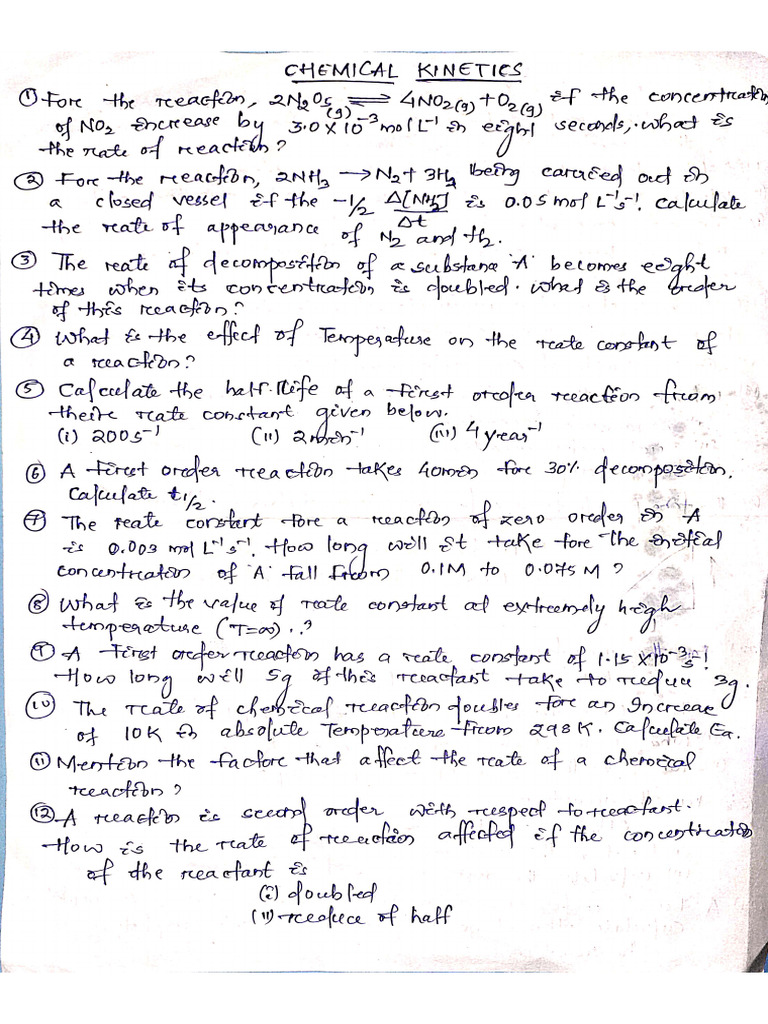 CHEMICAL KINETICS
① Fore the reaction, 2N₂O₅(g) ⇌ 4NO₂(g) + O₂(g) if the concentration
of NO₂ increase by 3.0×10⁻³ mol L⁻¹ in eight seconds, what is
the rate of reaction?
② Fore the reaction, 2NH₃ → N₂ + 3H₂ being carried out in
a closed vessel if the -1/2 Δ[NH₃]/Δt is 0.05 mol L⁻¹s⁻¹. Calculate
the rate of appearance of N₂ and H₂.
③ The rate of decomposition of a substance 'A' becomes eight
times when its concentration is doubled. what is the order
of this reaction?
④ What is the effect of Temperature on the rate constant of
a reaction?
⑤ Calculate the half life of a first order reaction from
their rate constant given below.
(i) 200 s⁻¹ (ii) 2 min⁻¹ (iii) 4 year⁻¹
⑥ A first order reaction takes 40 min fore 30% decomposition.
Calculate t1/2.
⑦ The rate constant fore a reaction of zero order in A
is 0.003 mol L⁻¹s⁻¹. How long will it take fore the initial
concentration of 'A' fall from 0.1M to 0.075 M ?
⑧ What is the value of rate constant at extremely high
temperature (T=∞)..?
⑨ A first order reaction has a rate constant of 1.15×10⁻³s⁻¹
How long will 5g of this reactant take to reduce 3g.
⑩ The rate of chemical reaction doubles fore an Increase
of 10K in absolute Temperature from 298K. Calculate Ea.
⑪ Mention the factore that affect the rate of a chemical
reaction ?
⑫ A reaction is second order with respect to reactant.
How is the rate of reaction affected if the concentration
of the reactant is
(i) doubled
(ii) reduce of half